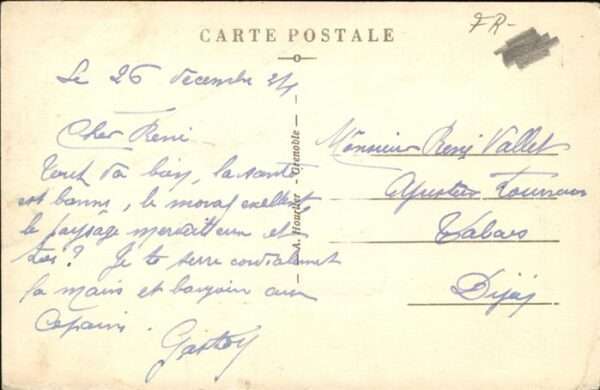 CARTE POSTALE
FR-
Le 26 décembre 24
Cher René
Tout va bien, la santé
est bonne, le moral excellent
le paysage merveilleux et
toi? Je te serre cordialement
la main et bonjour aux
Copains.
Gaston
A. Hourlier - Grenoble -
Monsieur René Vallet
Ajusteur
Dijon